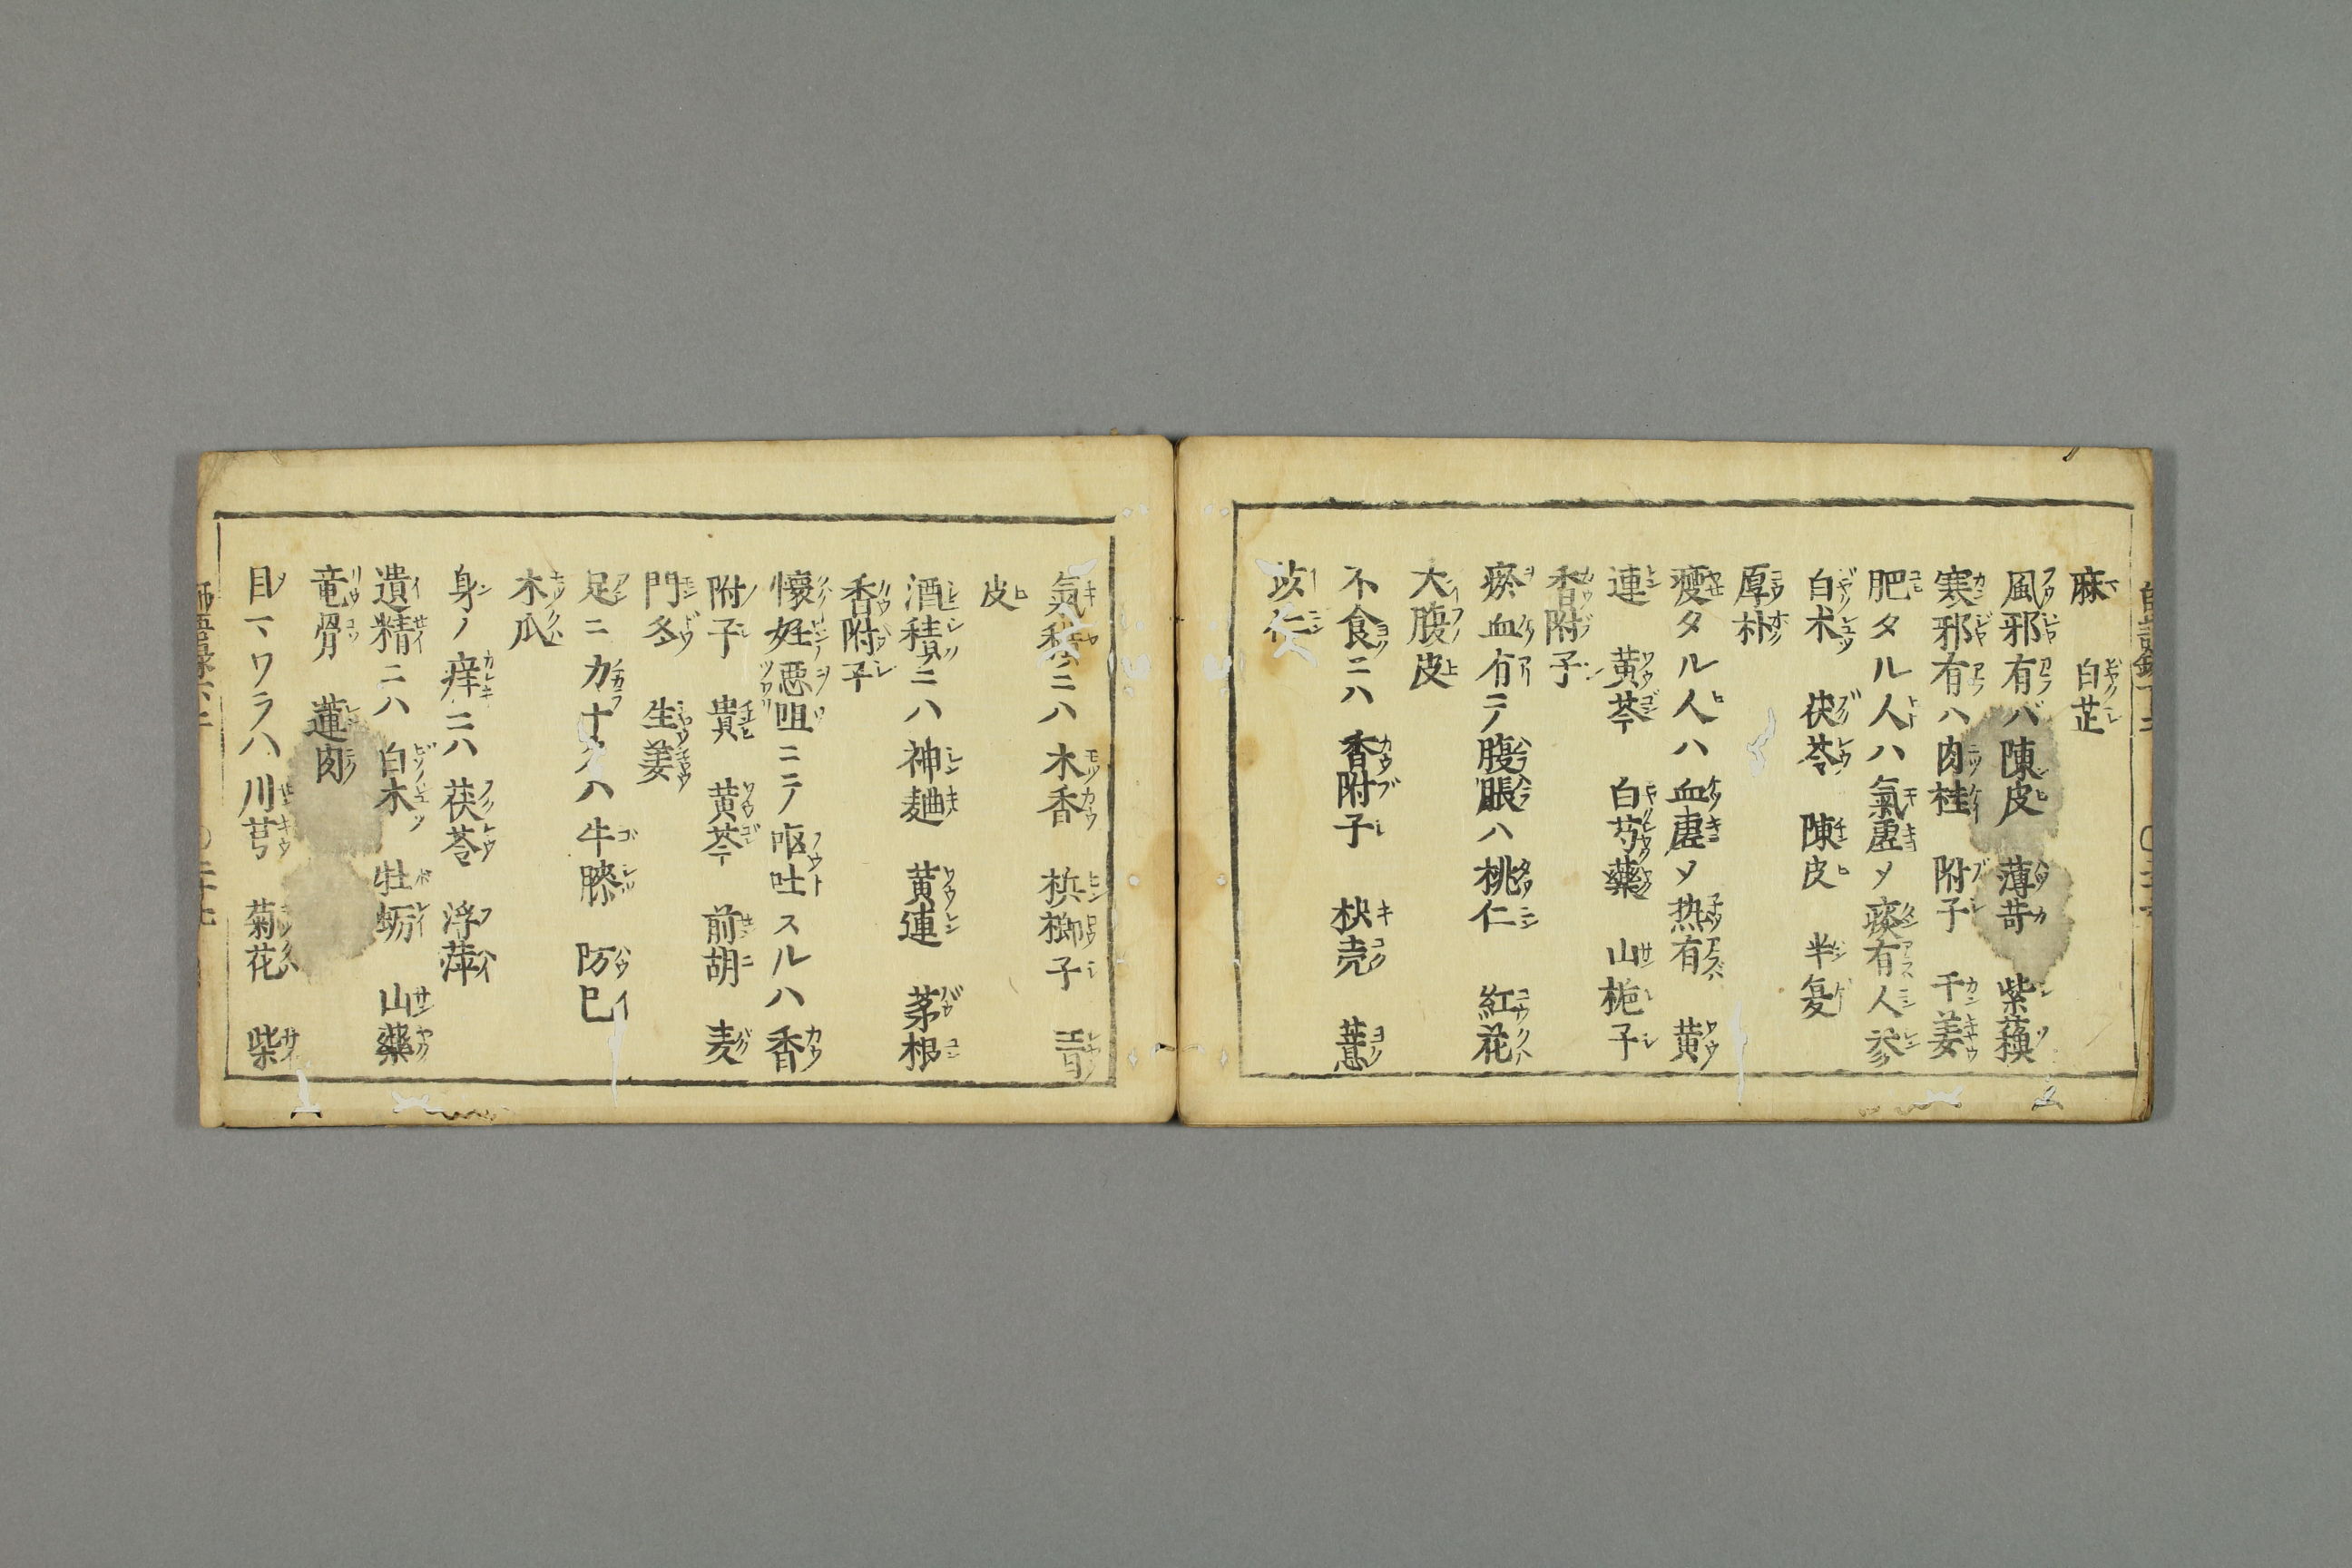 麻 白芷
風邪有バ陳皮 薄苛 紫蘓
寒邪有ハ肉桂 附子 干姜
肥タル人ハ氣虚メ痰有人參
白朮 茯苓 陳皮 半夏
厚朴
瘦タル人ハ血虚メ热有 黄
連 黄芩 白芍藥 山梔子
香附子
瘀血有テ腹脹ハ桃仁 紅花
大腹皮
不食ニハ 香附子 枳壳 薏
苡仁
氣積ニハ木香 梹榔子 青
皮
酒積ニハ神麯 黄連 茅根
香附子
懐妊悪阻ニテ呕吐スルハ香
附子 貴 黄芩 前胡 麦
門冬 生姜
足ニ力ナクハ牛膝 防已
木瓜
身ノ痒ニハ茯苓 浮萍
遺精ニハ 白朮 牡蛎 山藥
竜骨 蓮肉
目マワラハ川芎 菊花 柴